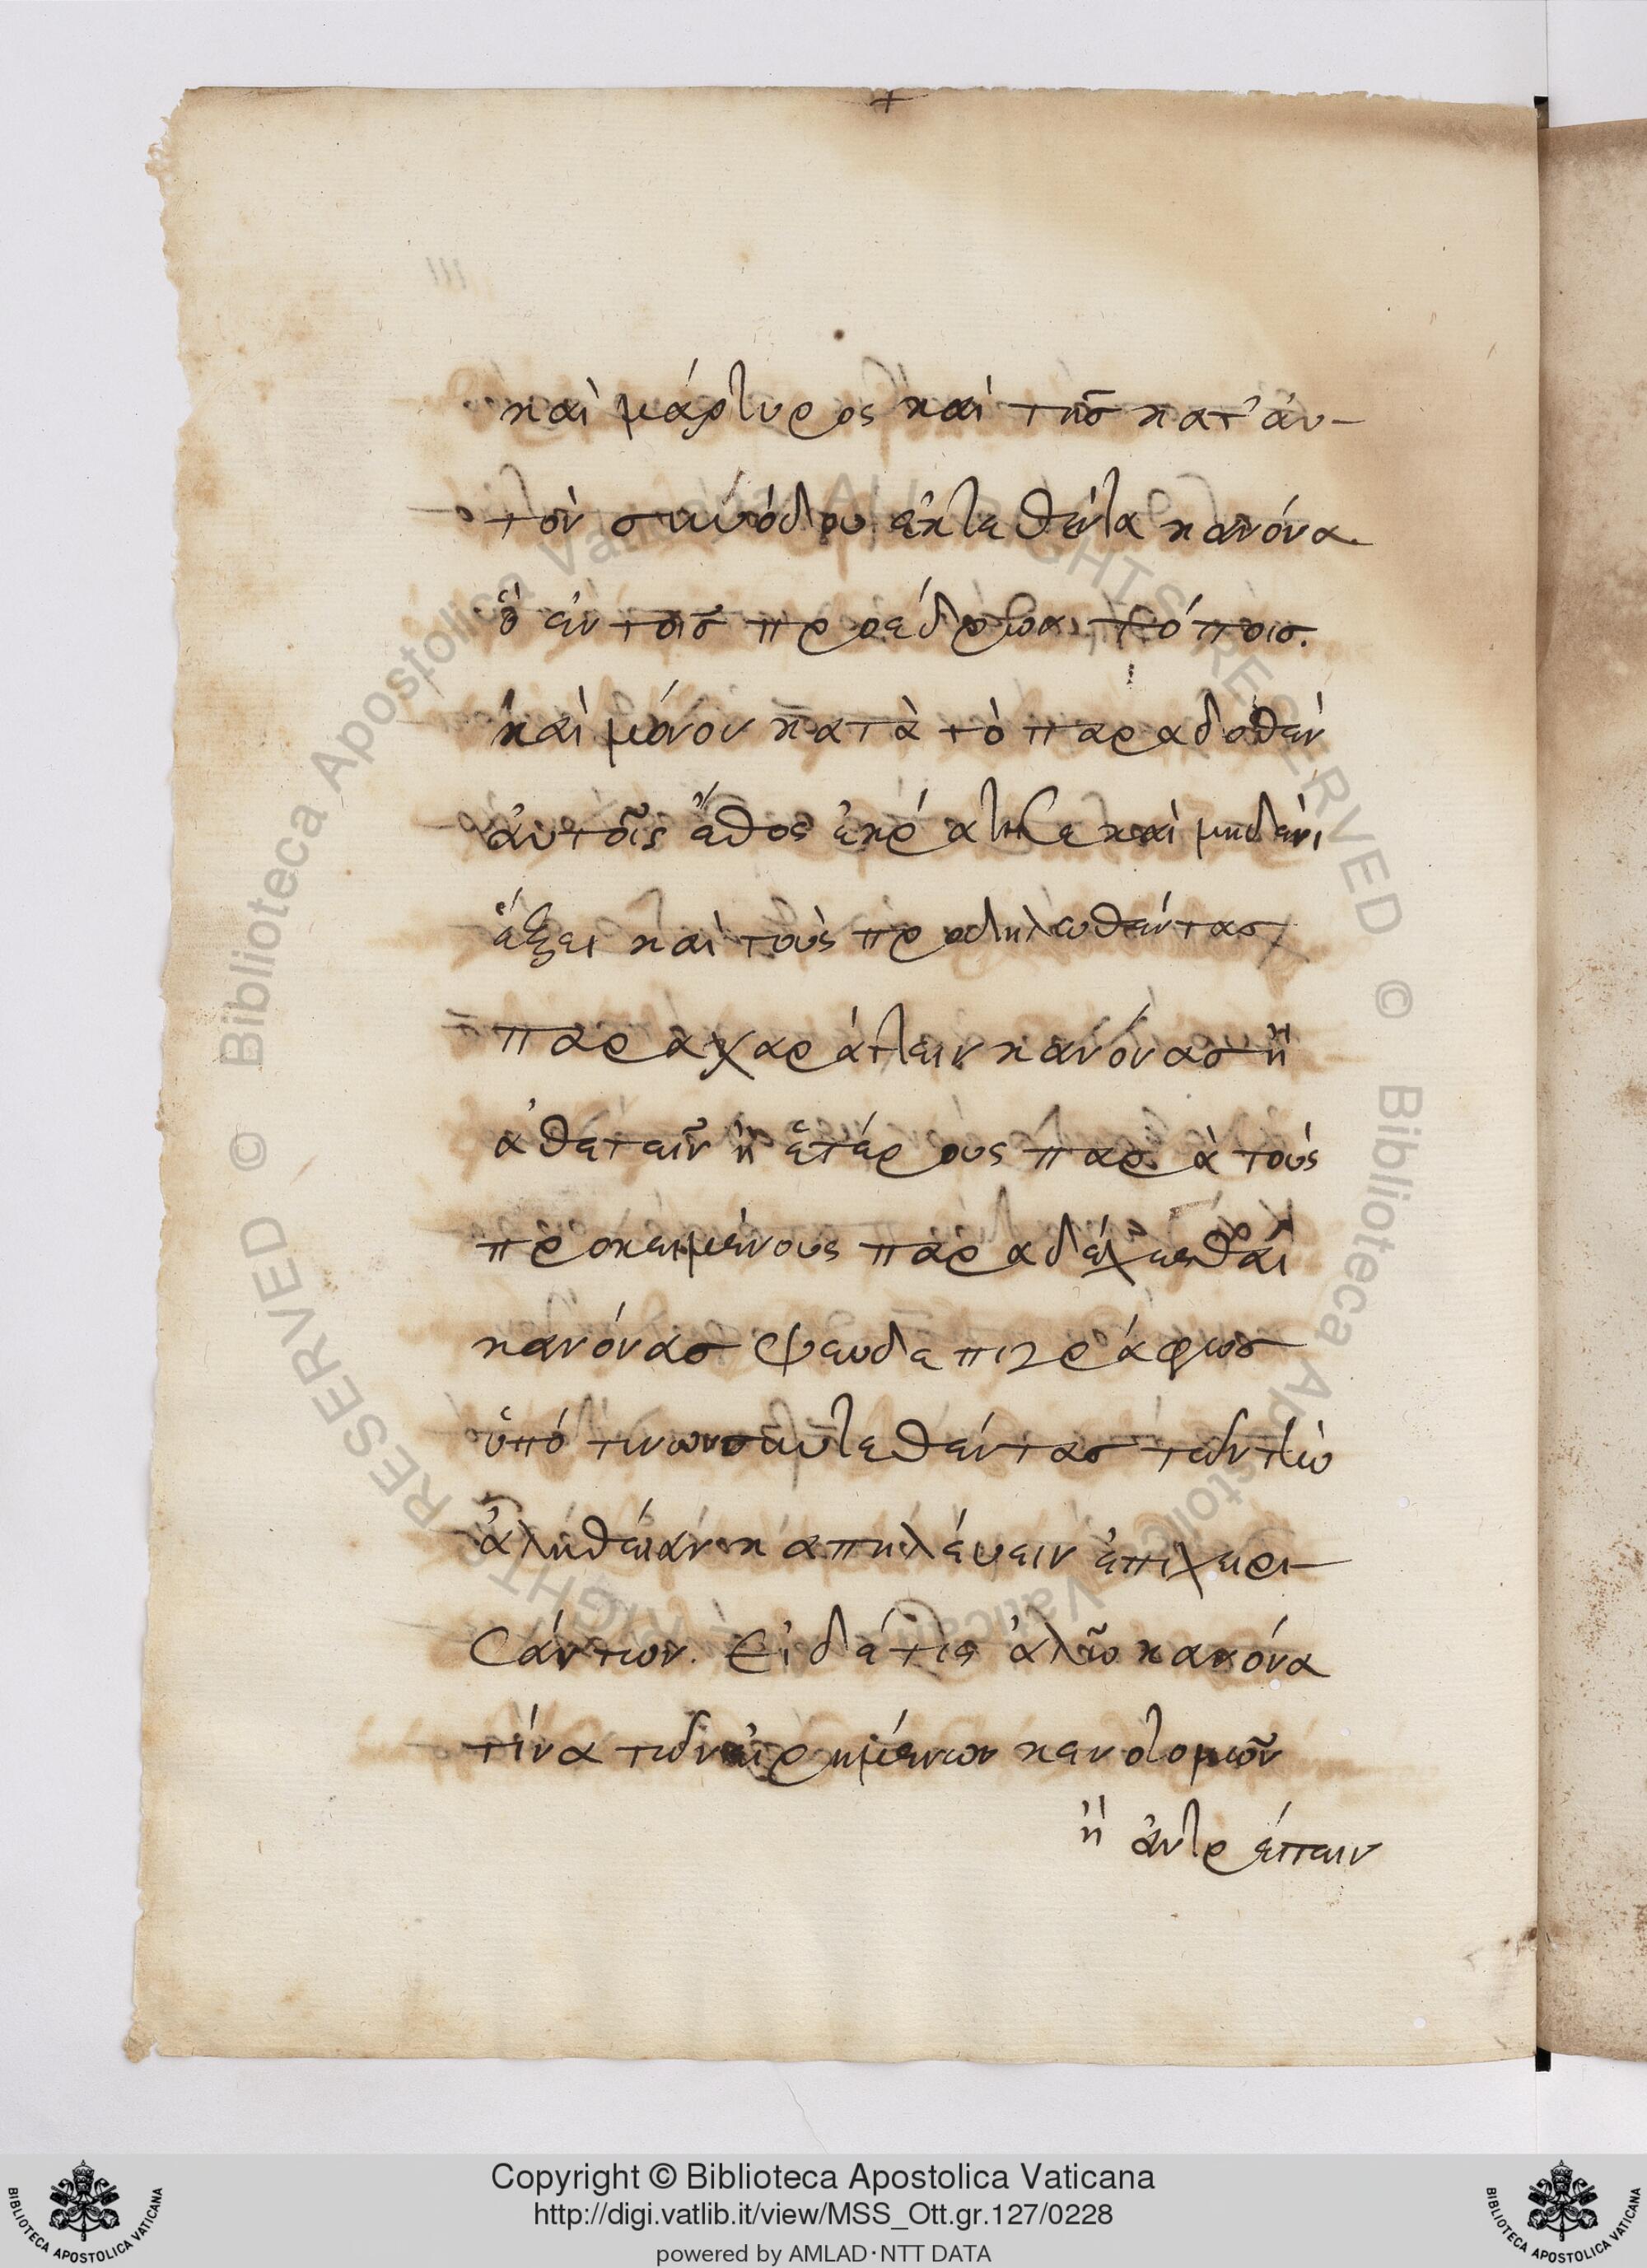 καὶ μάρτυρος καὶ τῆς κατ' αὐ-
τὸν συνόδου ἐκτεθέντα κανόνα
ὃ ἐν τοῖς προέδρων τόποις.
καὶ μόνον κατὰ τὸ παραδοθὲν
αὐτοῖς ἔθος ἐκράτησε καὶ μηδενὶ
ἐξεῖ καὶ τοὺς προδηλωθέντας
παραχαράττειν κανόνας ἢ
ἀθετεῖν ἢ ἑτέρους παρὰ τοὺς
προκειμένους παραδέχεσθαι
κανόνας ψευδεπιγράφως
ὑπό τινων συντεθέντας τῶν τὴν
ἀλήθειαν καπηλεύειν ἐπιχειρι-
σάντων. Εἰ δέ τις ἁλῶ κανόνα
τινα τῶν εἰρημένων καινοτομῶν
ἢ ἀντρέπειν
Copyright © Biblioteca Apostolica Vaticana
http://digi.vatlib.it/view/MSS_Ott.gr.127/0228
powered by AMLAD·NTT DATA
BIBLIOTECA APOSTOLICA VATICANA
BIBLIOTECA APOSTOLICA VATICANA